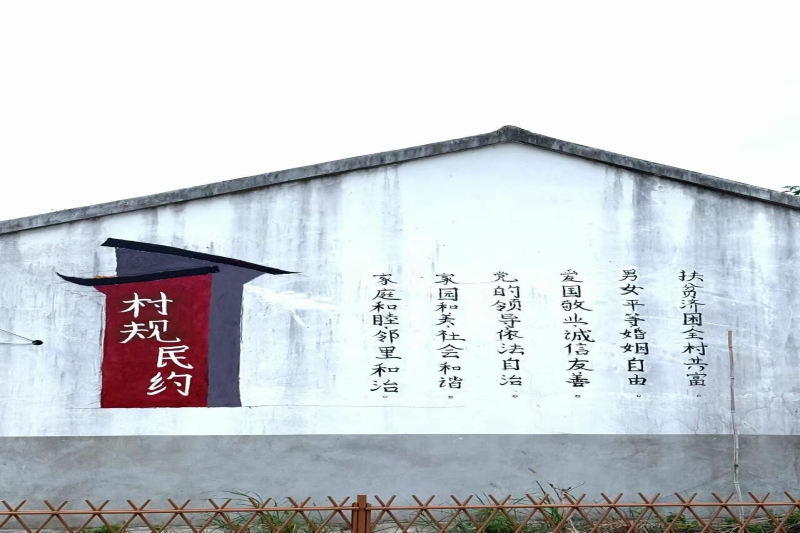 村规
民约
家庭和睦邻里和治。
家园和美社会和谐。
党的领导依法自治。
爱国敬业诚信友善。
男女平等婚姻自由。
扶贫济困全村共富。